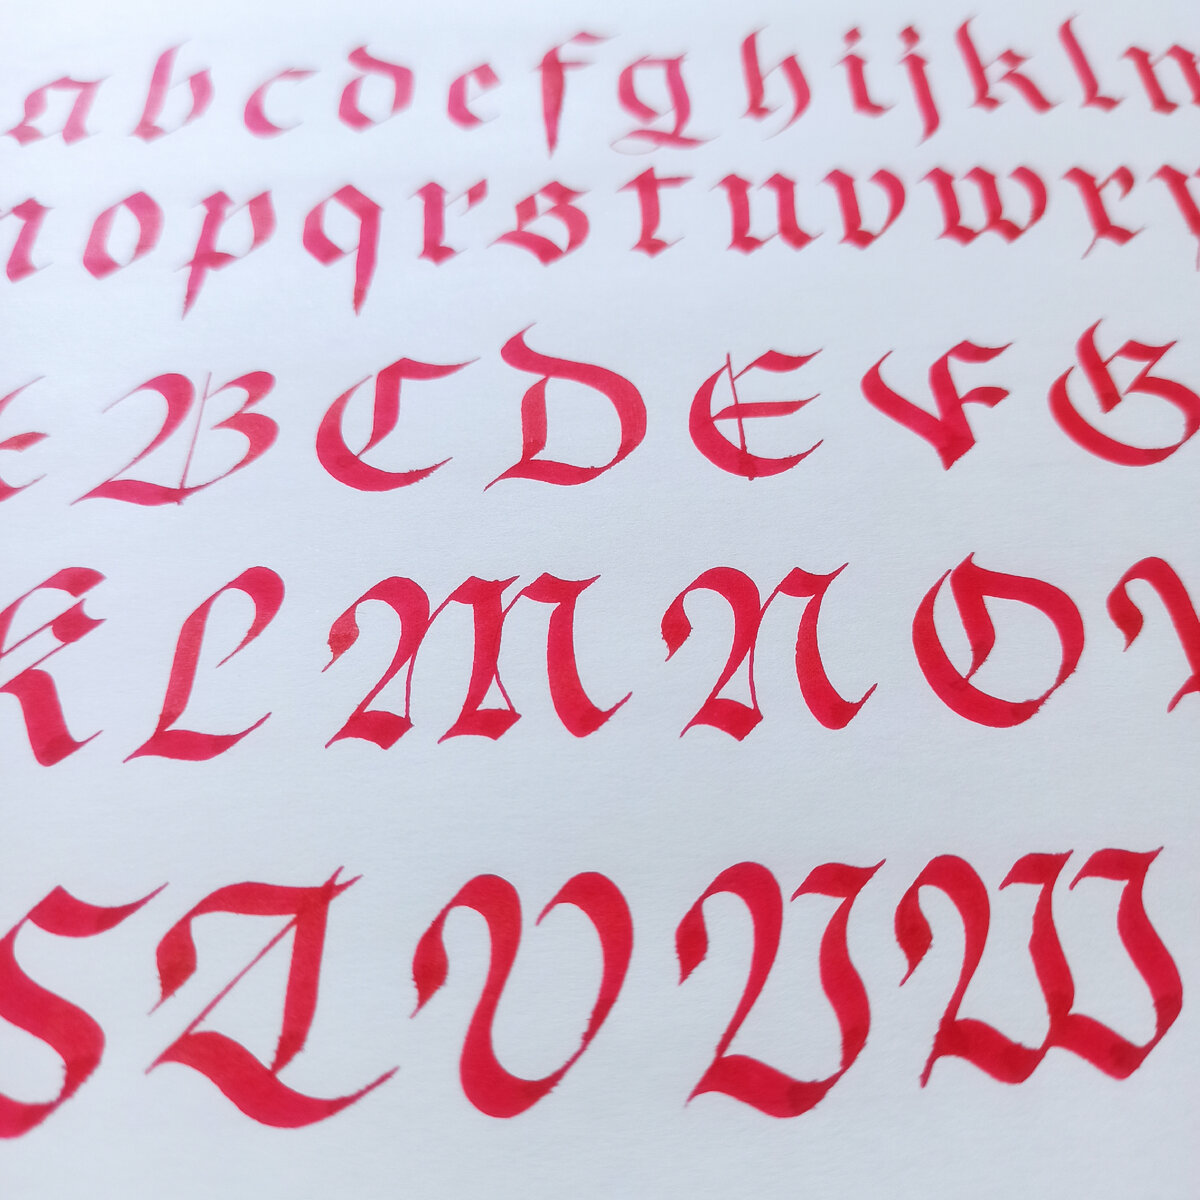 a b c d e f g h i j k l m
n o p q r s t u v w x y
A B C D E F G
K L M N O P
S T U V W